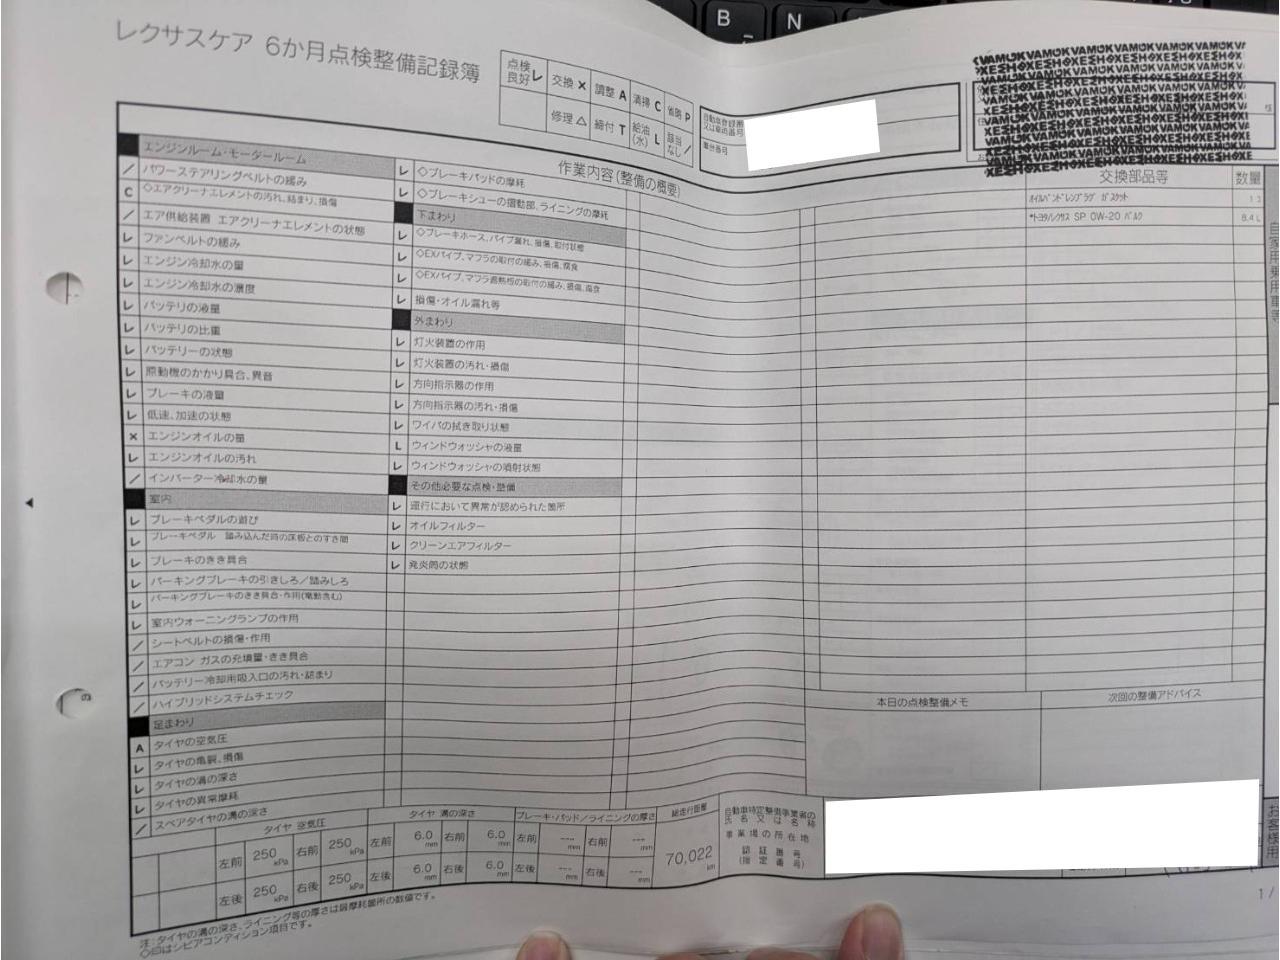 B N
レクサスケア 6か月点検整備記録簿
点検良好 レ 交換 × 調整 A 清掃 C 省略 P
修理 △ 締付 T 給油(水) L 該当なし /
自動車登録番号又は車両番号
車台番号
様
作業内容(整備の概要)
交換部品等 数量
エンジンルーム・モータールーム
/ パワーステアリングベルトの緩み
C ◇エアクリーナエレメントの汚れ、詰まり、損傷
/ エア供給装置 エアクリーナエレメントの状態
レ ファンベルトの緩み
レ エンジン冷却水の量
レ エンジン冷却水の濃度
レ バッテリの液量
レ バッテリの比重
レ バッテリーの状態
レ 原動機のかかり具合、異音
レ ブレーキの液量
レ 低速、加速の状態
× エンジンオイルの量
レ エンジンオイルの汚れ
/ インバーター冷却水の量
室内
レ ブレーキペダルの遊び
レ ブレーキペダル 踏み込んだ時の床板とのすき間
レ ブレーキのきき具合
レ パーキングブレーキの引きしろ/踏みしろ
レ パーキングブレーキのきき具合・作用(電動含む)
レ 室内ウォーニングランプの作用
/ シートベルトの損傷・作用
/ エアコン ガスの充填量・きき具合
/ バッテリー冷却用吸入口の汚れ・詰まり
/ ハイブリッドシステムチェック
足まわり
A タイヤの空気圧
レ タイヤの亀裂、損傷
レ タイヤの溝の深さ
レ タイヤの異常摩耗
/ スペアタイヤの溝の深さ
レ ◇ブレーキパッドの摩耗
レ ◇ブレーキシューの摺動部、ライニングの摩耗
下まわり
レ ◇ブレーキホース、パイプ漏れ、損傷、取付状態
レ ◇EXパイプ、マフラの取付の緩み、損傷、腐食
レ ◇EXパイプ、マフラ遮熱板の取付の緩み、損傷、腐食
レ 損傷・オイル漏れ等
外まわり
レ 灯火装置の作用
レ 灯火装置の汚れ・損傷
レ 方向指示器の作用
レ 方向指示器の汚れ・損傷
レ ワイパの拭き取り状態
L ウィンドウォッシャの液量
レ ウィンドウォッシャの噴射状態
その他必要な点検・整備
レ 運行において異常が認められた箇所
レ オイルフィルター
レ クリーンエアフィルター
レ 発炎筒の状態
オイルパンドレンプラグ ガスケット 1
*トヨタ/レクサス SP 0W-20 バルク 8.4 L
自家用乗用車等
本日の点検整備メモ 次回の整備アドバイス
タイヤ 空気圧 タイヤ 溝の深さ ブレーキ・パッド/ライニングの厚さ 総走行距離
左前 250 kPa 右前 250 kPa 左前 6.0 mm 右前 6.0 mm 左前 --- mm 右前 --- mm
左後 250 kPa 右後 250 kPa 左後 6.0 mm 右後 6.0 mm 左後 --- mm 右後 --- mm
70,022 km
自動車特定整備事業者の氏名又は名称
事業場の所在地
認証番号
(指定番号)
お客様用
注:タイヤの溝の深さ、ライニング等の厚さは最摩耗箇所の数値です。
◇印はシビアコンディション項目です。
1 /